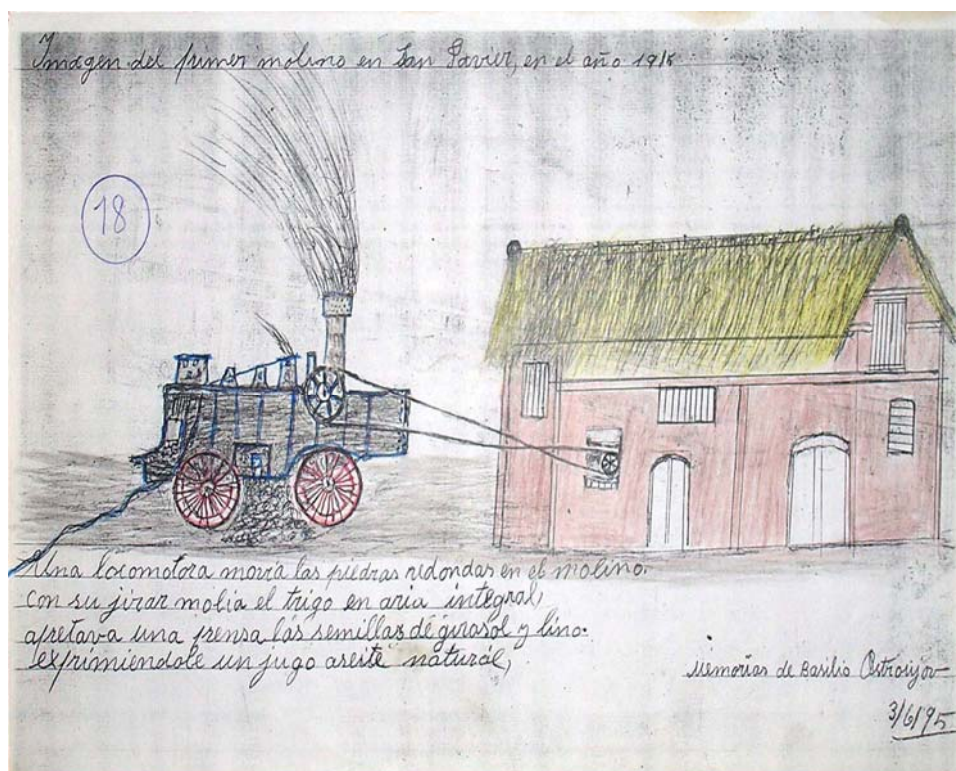 Imagen del primer molino en San Javier, en el año 191
18
Una locomotora movia las piedras redondas en el molino.
con su jirar molia el trigo en aria integral,
apretava una prensa las semillas de girasol y lino.
exprimiendole un jugo aseite natural,
Memorias de Basilio
3/6/95